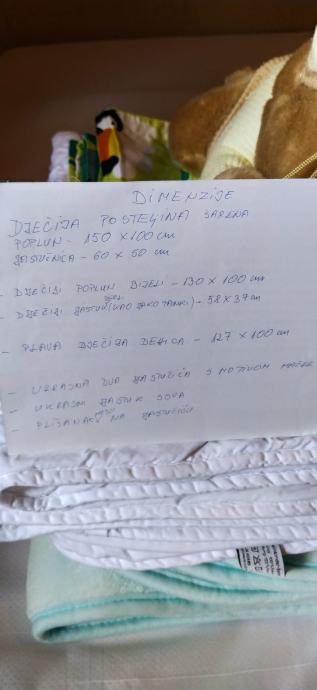 DIMENZIJE
DJEČIJA POSTELJINA ŠARENA
POPLUN - 150 X 100 cm
JASTUČNICA - 60 X 50 cm
- DJEČIJI POPLUN BIJELI - 130 X 100 cm
- DJEČIJI JASTUK (KAO JAKO TANKI) - 58 X 37 cm
- PLAVA DJEČIJA DEKICA - 127 X 100 cm
- UKRASNA DVA JASTUČIĆA S MOTIVOM
- UKRASNI JASTUK SOVA
- PLIŠANAC NA JASTUČIĆU